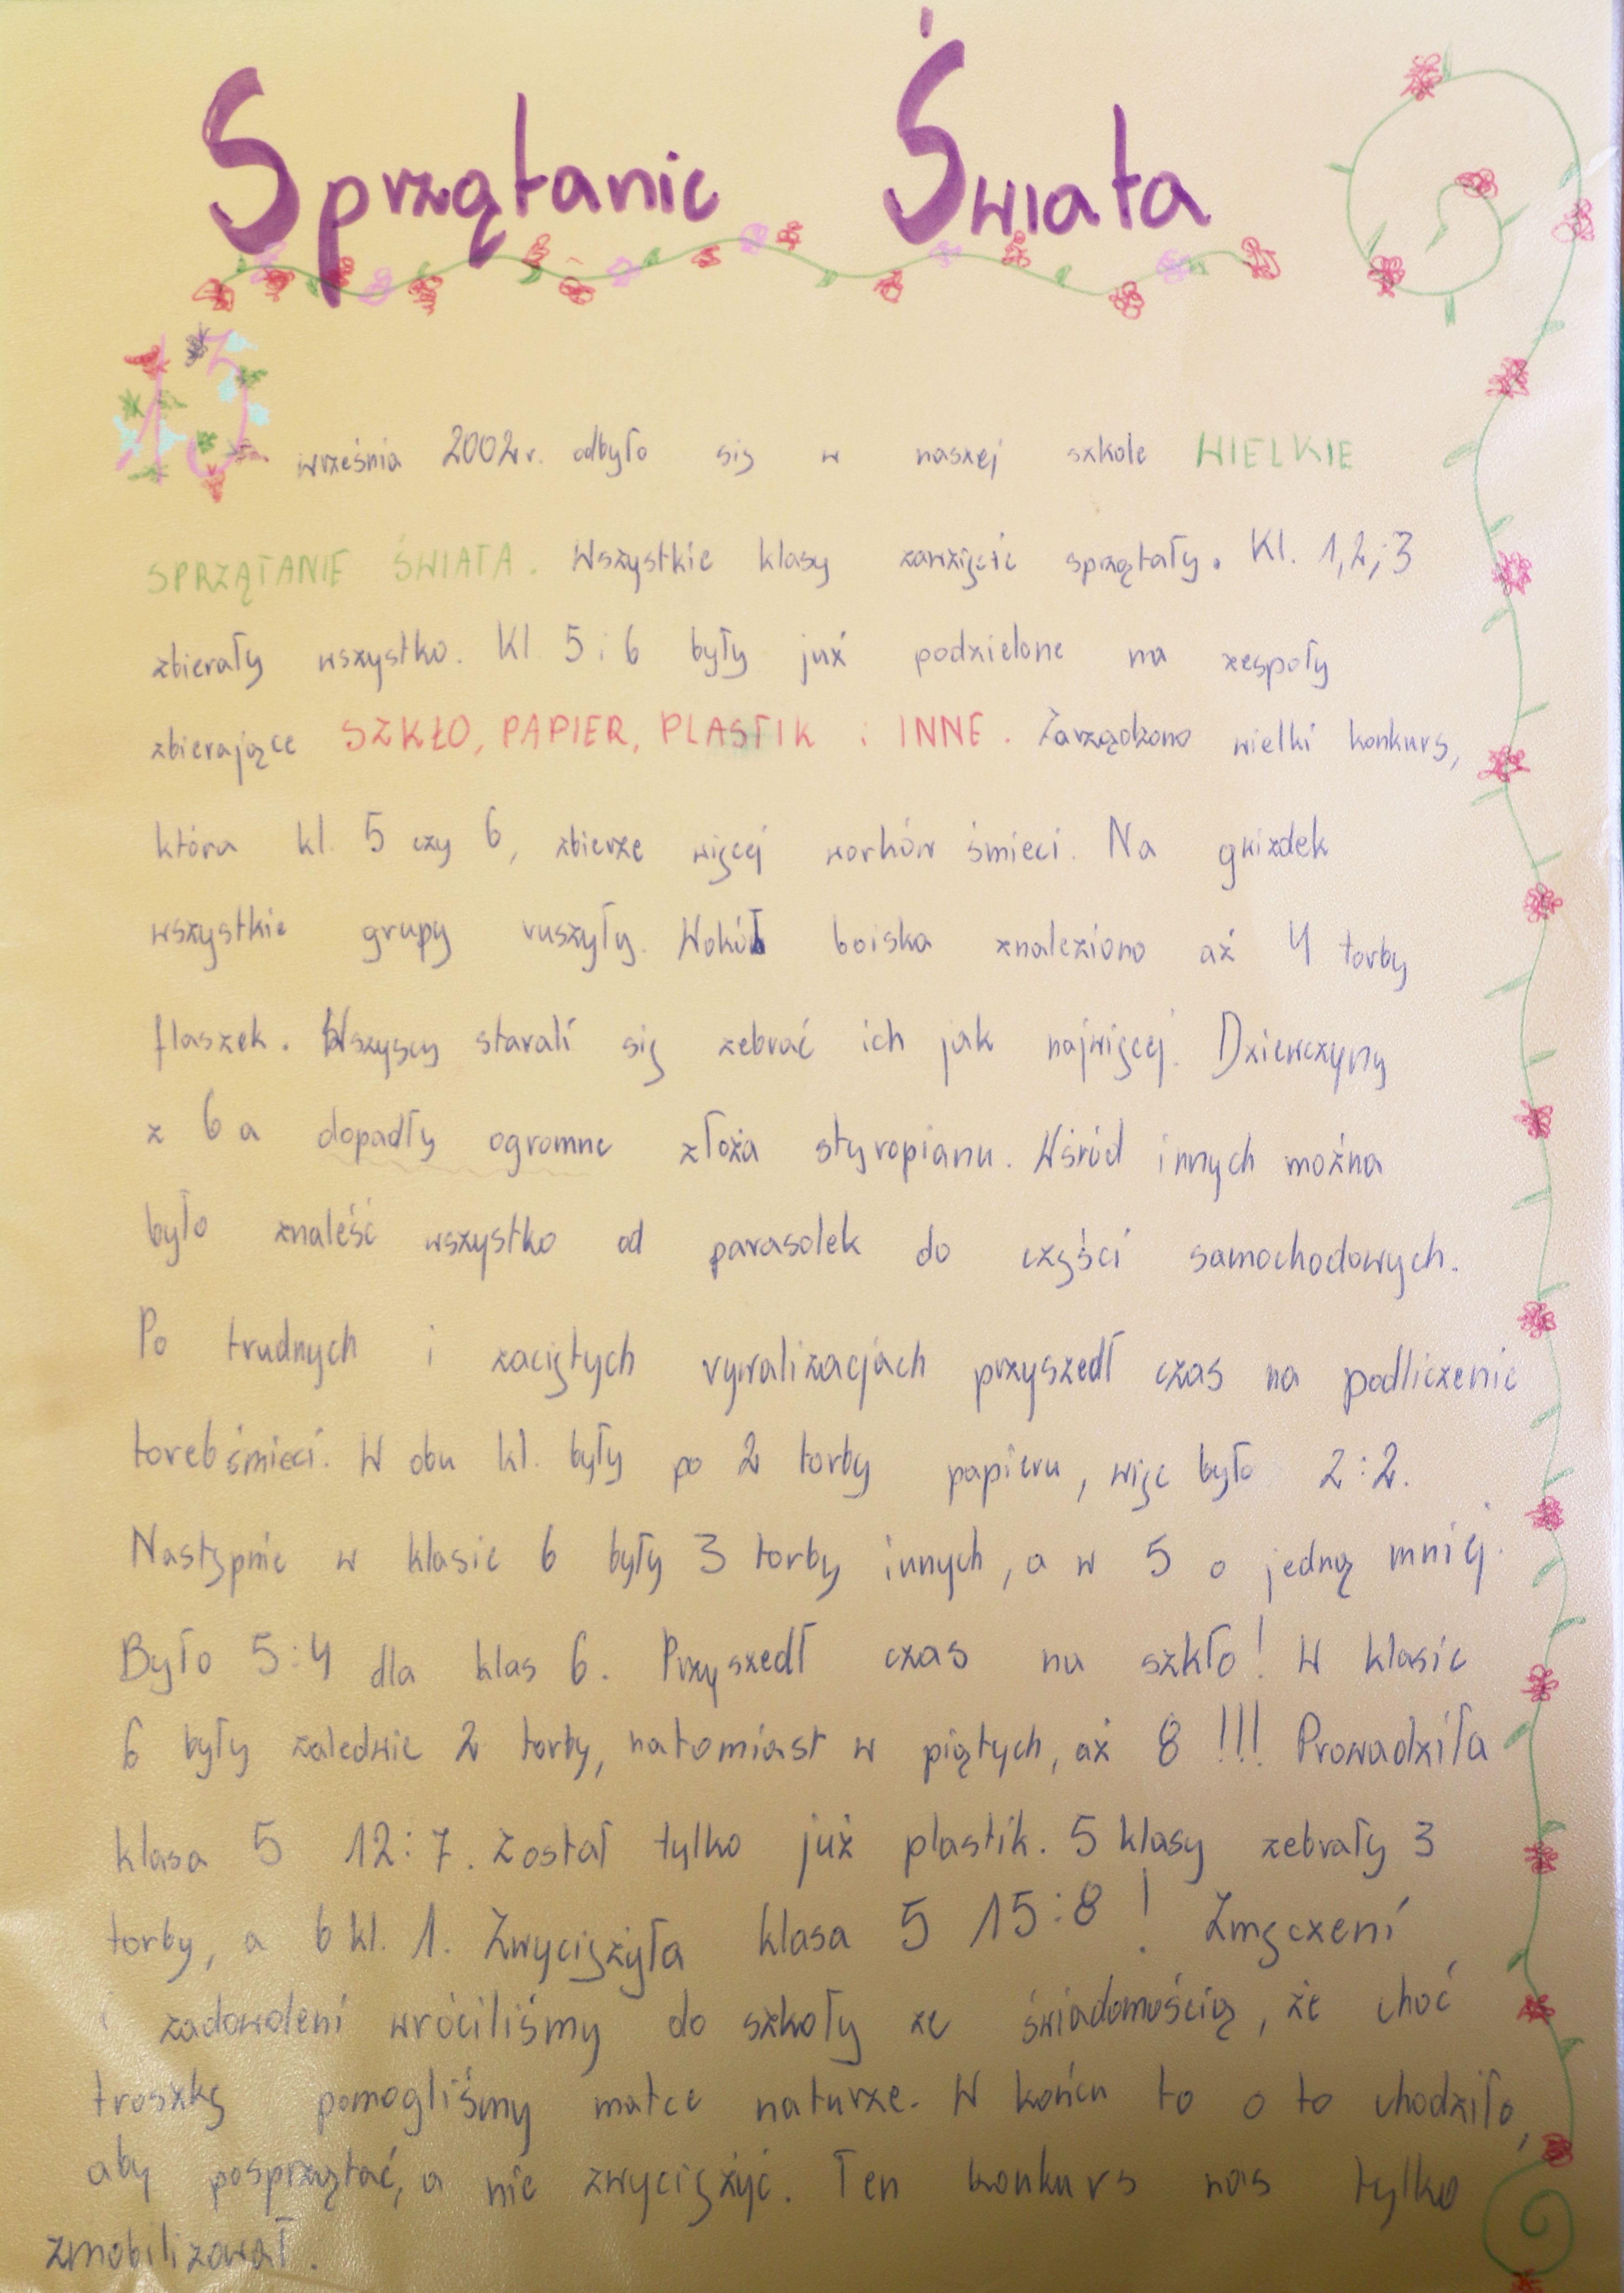 Sprzątanie Świata
13 września 2002r. odbyło się w naszej szkole WIELKIE
SPRZĄTANIE ŚWIATA. Wszystkie klasy zawzięcie sprzątały. Kl. 1,2,i 3
zbierały wszystko. Kl. 5 i 6 były już podzielone na zespoły
zbierające SZKŁO, PAPIER, PLASTIK i INNE. Zarządzono wielki konkurs,
która kl. 5 czy 6, zbierze więcej worków śmieci. Na gwizdek
wszystkie grupy ruszyły. Wokół boiska znaleziono aż 4 torby
flaszek. Wszyscy starali się zebrać ich jak najwięcej. Dziewczyny
z 6a dopadły ogromne złoża styropianu. Wśród innych można
było znaleść wszystko od parasolek do części samochodowych.
Po trudnych i zaciętych rywalizacjach przyszedł czas na podliczenie
toreb śmieci. W obu kl. były po 2 torby papieru, więc było 2:2.
Następnie w klasie 6 były 3 torby innych, a w 5 o jedną mniej.
Było 5:4 dla klas 6. Przyszedł czas na szkło! W klasie
6 były zaledwie 2 torby, natomiast w piątych, aż 8 !!! Prowadziła
klasa 5 12:7. Został tylko już plastik. 5 klasy zebrały 3
torby, a 6 kl. 1. Zwyciężyła klasa 5 15:8 ! Zmęczeni
i zadowoleni wróciliśmy do szkoły ze świadomością, że choć
troszkę pomogliśmy matce naturze. W końcu to o to chodziło,
aby posprzątać, a nie zwyciężyć. Ten konkurs nas tylko
zmobilizował.